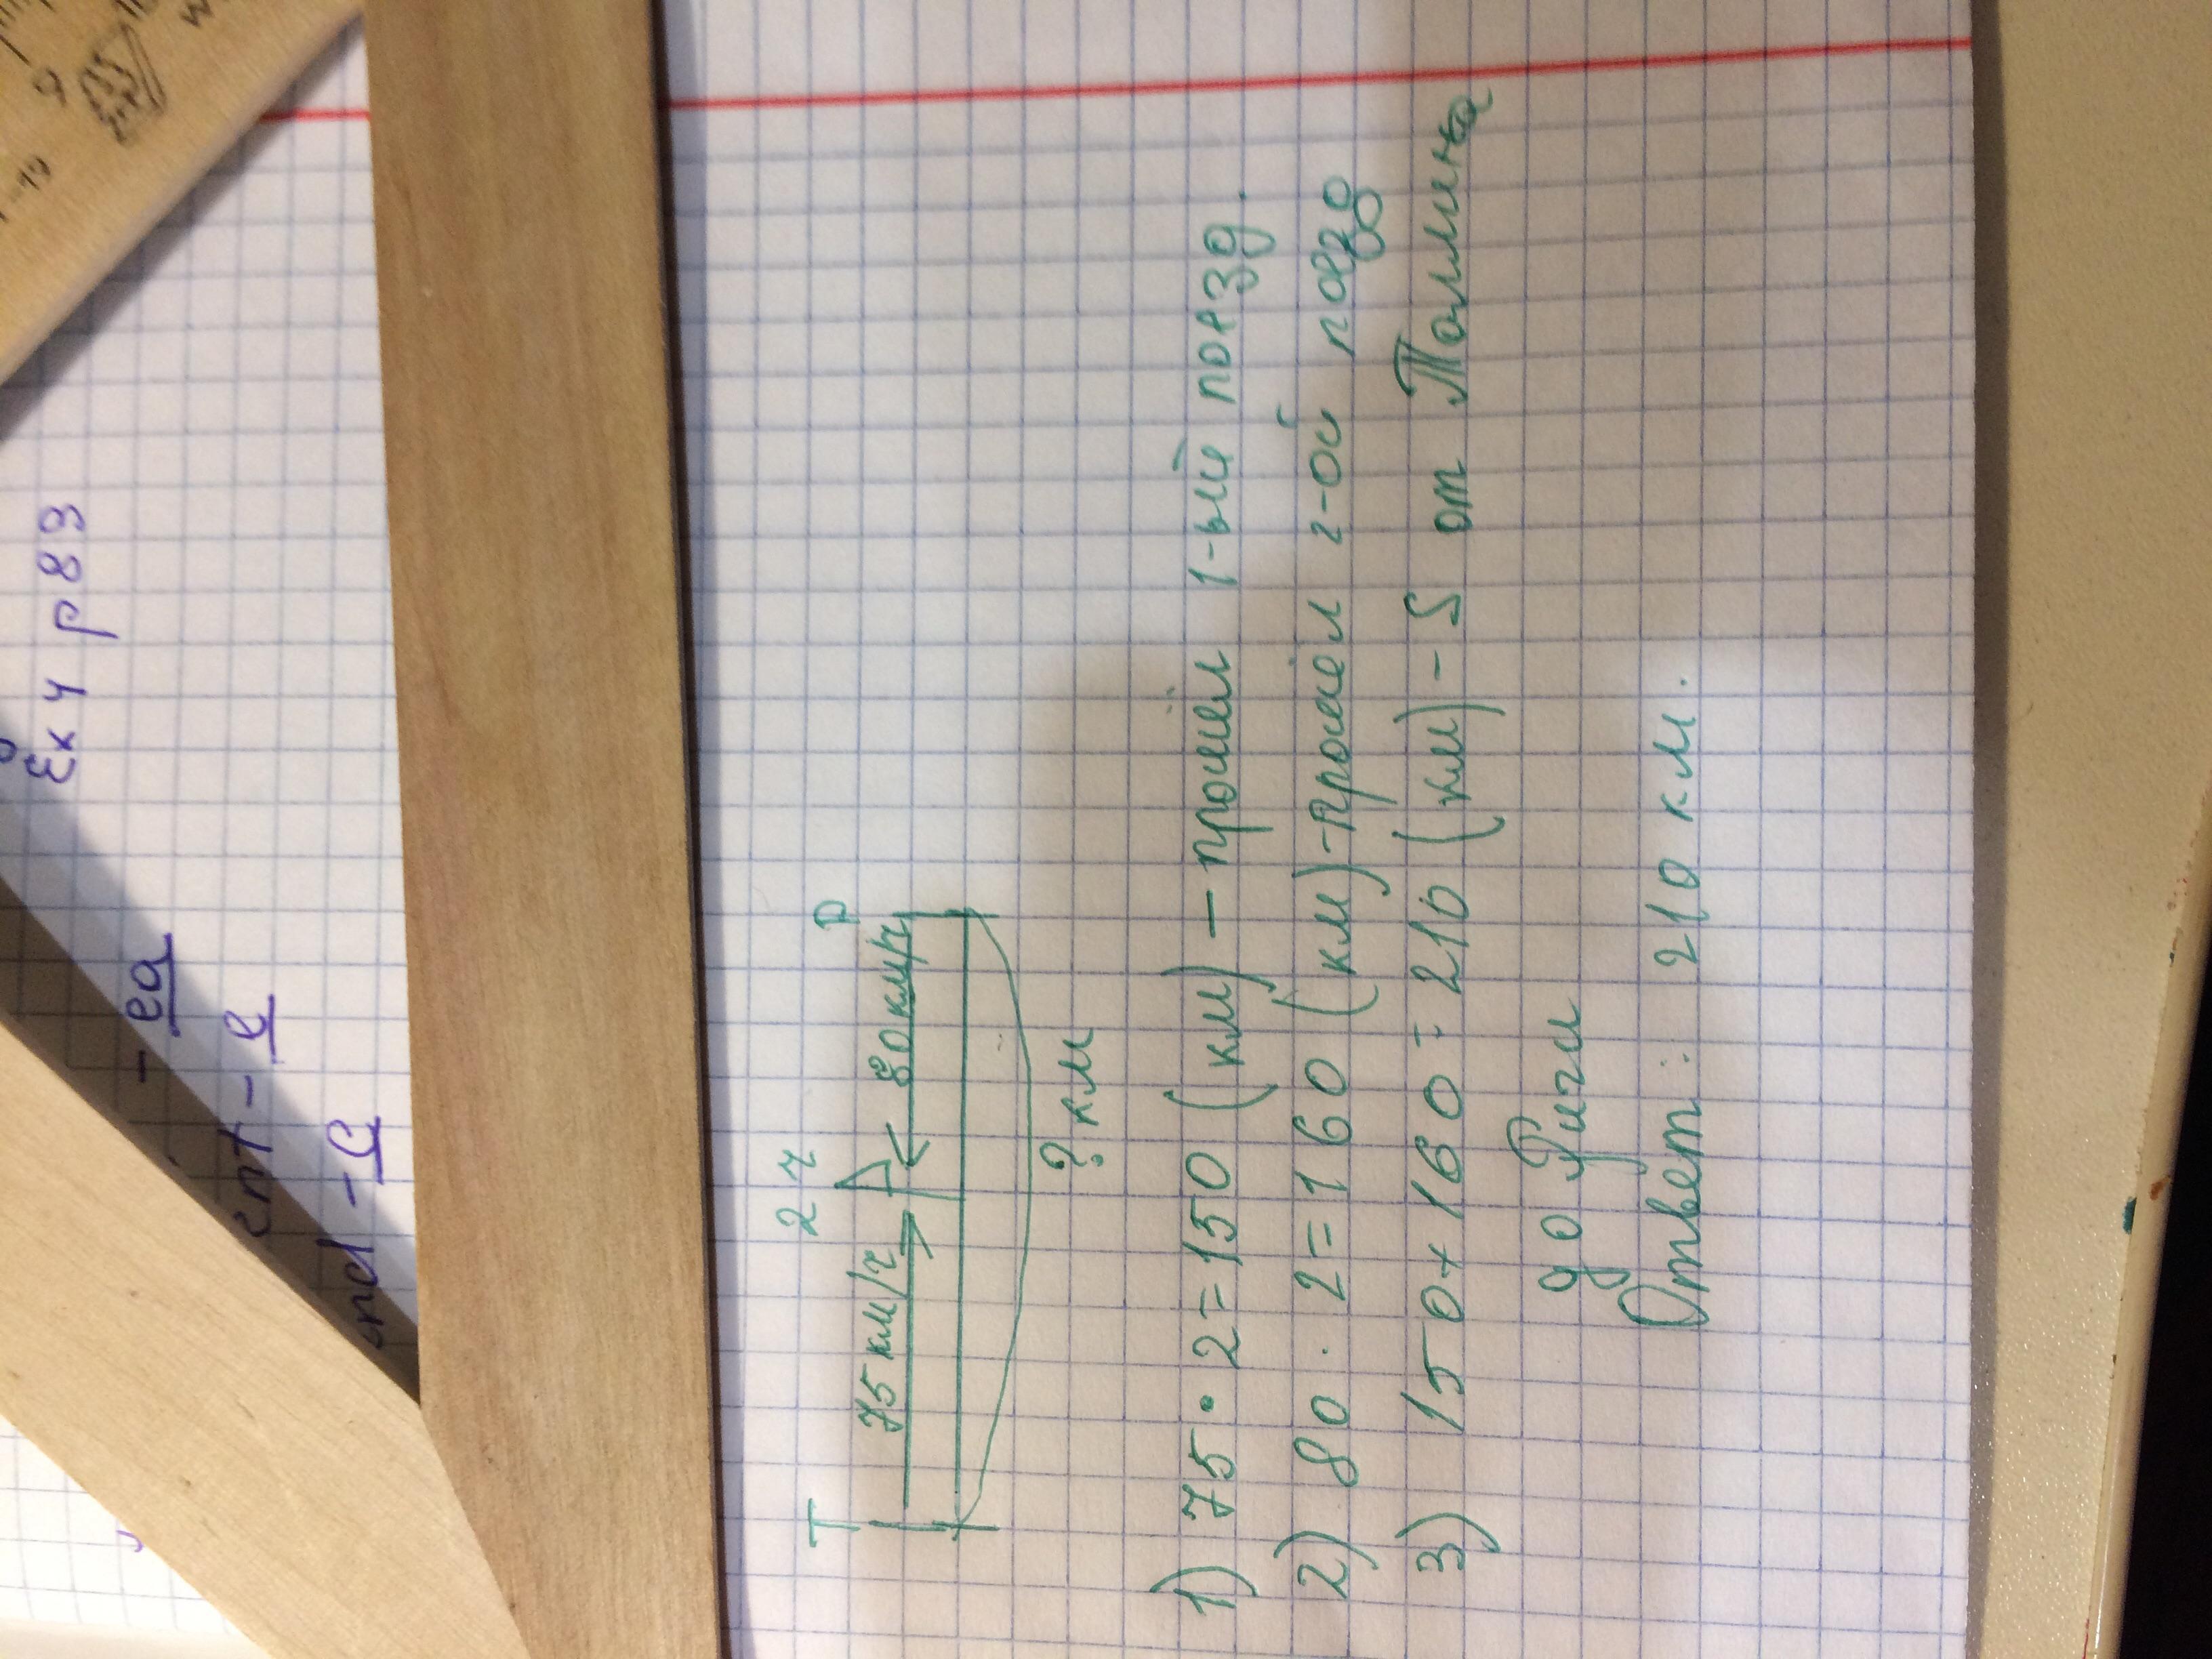 Ex 4 p 83
- ea
ent - e
end - e
T 2 ч Р
75 км/ч 80 км/ч
? км
1) 75 • 2 = 150 (км) – прошёл 1-ый поезд.
2) 80 · 2 = 160 (км) – прошёл 2-ой поезд
3) 150 + 160 = 210 (км) – S от Таллина
до Риги
Ответ: 210 км.